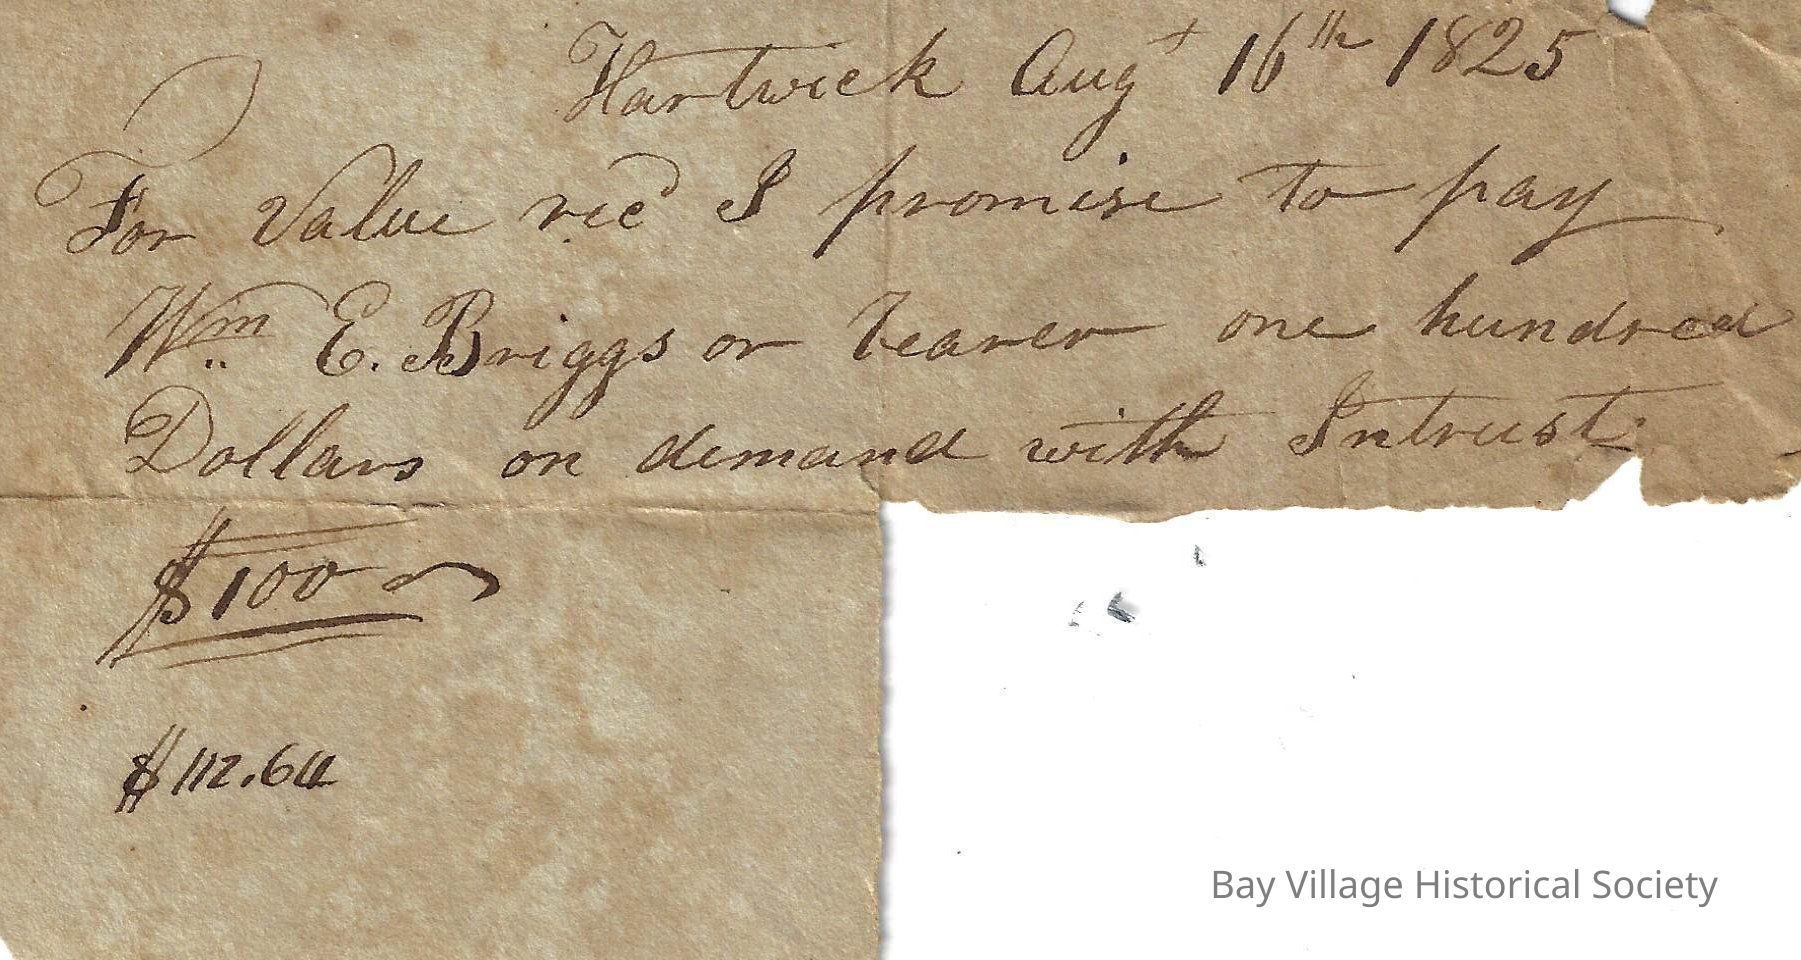 Hartwick Augt 16th 1825
For Value recd I promise to pay
Wm E. Briggs or bearer one hundred
Dollars on demand with Intrust
$100
$112.60
Bay Village Historical Society